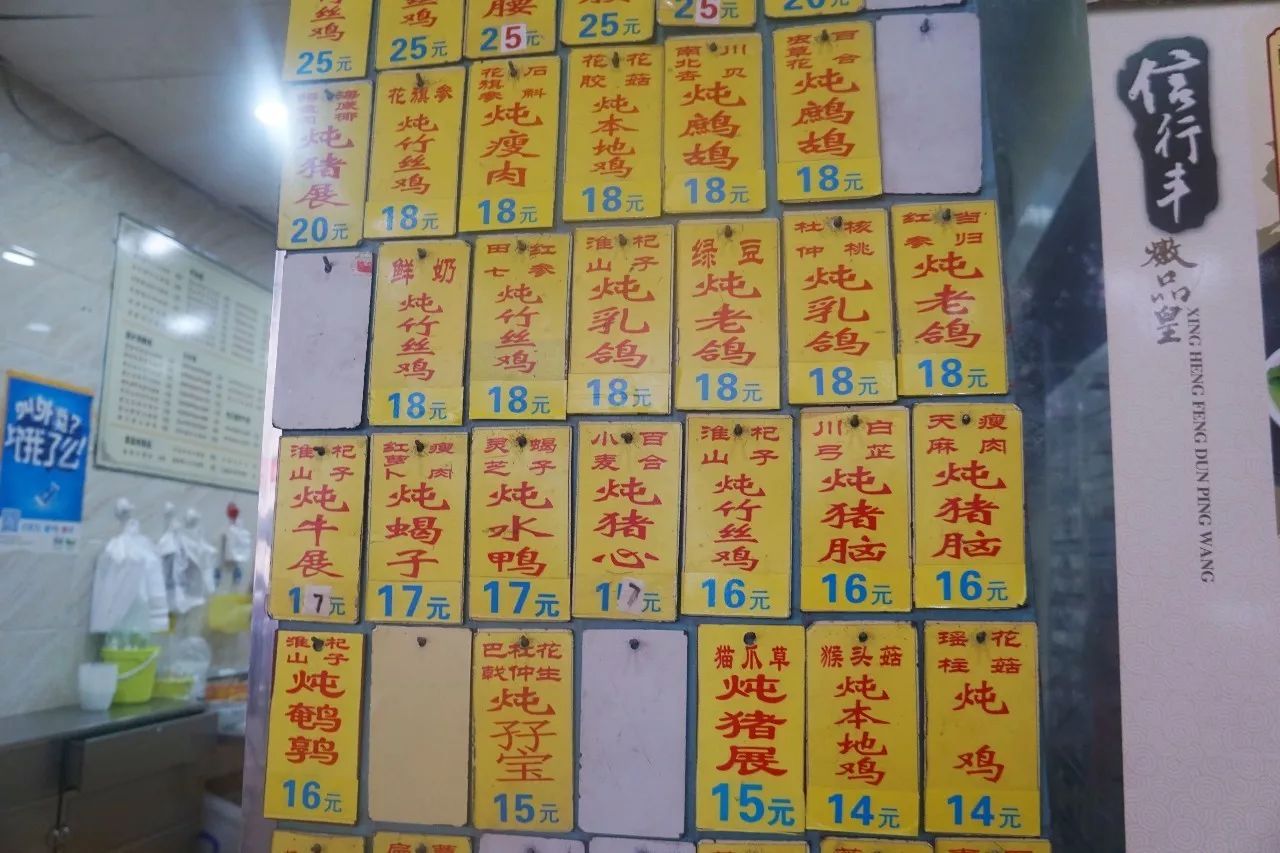 竹丝鸡
25元
丝鸡
25元
腰
25元
25元
25元
20元
海底椰
炖猪展
20元
花旗参
炖竹丝鸡
18元
花旗参
石斛
炖瘦肉
18元
花胶
花菇
炖本地鸡
18元
南北杏
川贝
炖鹧鸪
18元
虫草花
百合
炖鹧鸪
18元
鲜奶
炖竹丝鸡
18元
田七
红参
炖竹丝鸡
18元
淮山
杞子
炖乳鸽
18元
绿豆
炖老鸽
18元
杜仲
核桃
炖乳鸽
18元
红参
当归
炖老鸽
18元
淮山
杞子
炖牛展
17元
红萝卜
瘦肉
炖蝎子
17元
灵芝
蝎子
炖水鸭
17元
小麦
百合
炖猪心
17元
淮山
杞子
炖竹丝鸡
16元
川弓
白芷
炖猪脑
16元
天麻
瘦肉
炖猪脑
16元
淮山
杞子
炖鹌鹑
16元
巴戟
杜仲
花生
炖孖宝
15元
猫爪草
炖猪展
15元
猴头菇
炖本地鸡
14元
瑶柱
花菇
炖鸡
14元
信行丰
炖品皇
XING HENG FENG DUN PING WANG
叫外卖?
饿了么!